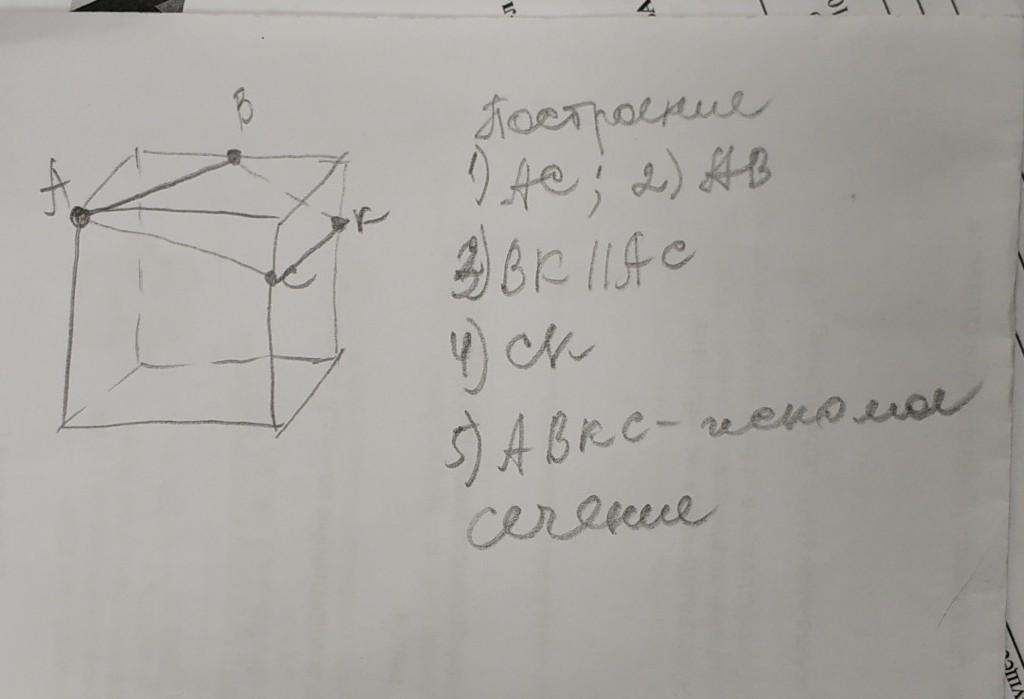 B
A
K
C
Построение
1) AC; 2) AB
3) BK || AC
4) CK
5) ABKC - искомое
сечение